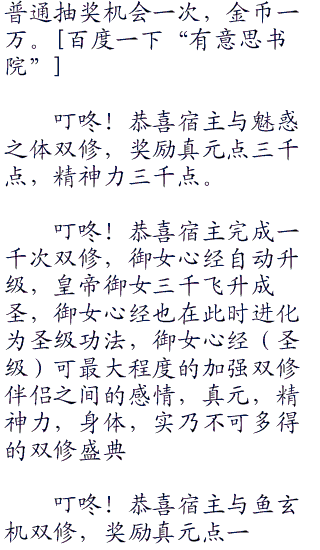 普通抽奖机会一次，金币一
万。[百度一下“有意思书
院”]
叮咚！恭喜宿主与魅惑
之体双修，奖励真元点三千
点，精神力三千点。
叮咚！恭喜宿主完成一
千次双修，御女心经自动升
级，皇帝御女三千飞升成
圣，御女心经也在此时进化
为圣级功法，御女心经（圣
级）可最大程度的加强双修
伴侣之间的感情，真元，精
神力，身体，实乃不可多得
的双修盛典
叮咚！恭喜宿主与鱼玄
机双修，奖励真元点一